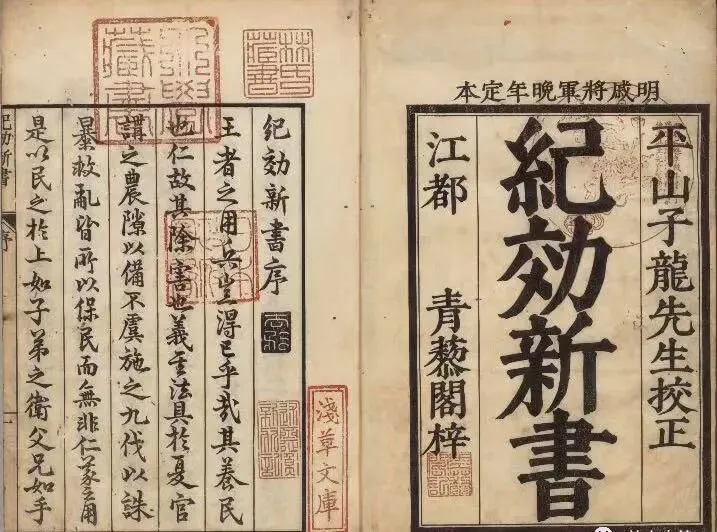 明戚將軍晚年定本
平山子龍先生挍正
紀効新書
江都 青藜閣梓
林氏藏書
紀効新書序
淺草文庫
王者之用兵豈得已乎哉其養民
也仁故其除害也義 法具於夏官
講之農隙以備不虞施之九伐以誅
暴救亂皆所以保民而無非仁義之用
是以民之於上如子弟之衛父兄如手
紀効新書 序